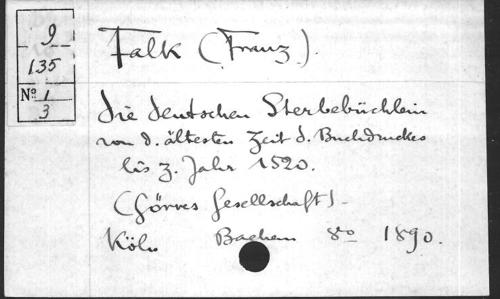 9
135
Nº 1
3
Falk (Franz).
Die deutschen Sterbebüchlein
von d. ältesten Zeit d. Buchdruckes
bis z. Jahr 1520.
(Görres Gesellschaft)-
Köln Bachem 8º 1890.